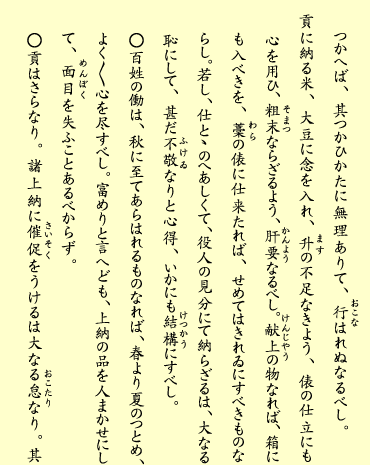 つかへば、其つかひかたに無理ありて、行はれぬなるべし。
貢に納る米、大豆に念を入れ、升の不足なきよう、俵の仕立にも
心を用ひ、粗末ならざるよう、肝要なるべし。献上の物なれば、箱に
も入べきを、藁の俵に仕来たれば、せめてはきれゐにすべきものな
らし。若し、仕とゝのへあしくて、役人の見分にて納らざるは、大なる
恥にして、甚だ不敬なりと心得、いかにも結構にすべし。
〇百姓の働は、秋に至てあらはれるものなれば、春より夏のつとめ、
よく〳〵心を尽すべし。富めりと言へども、上納の品を人まかせにし
て、面目を失ふことあるべからず。
〇貢はさらなり。諸上納に催促をうけるは大なる怠なり。其